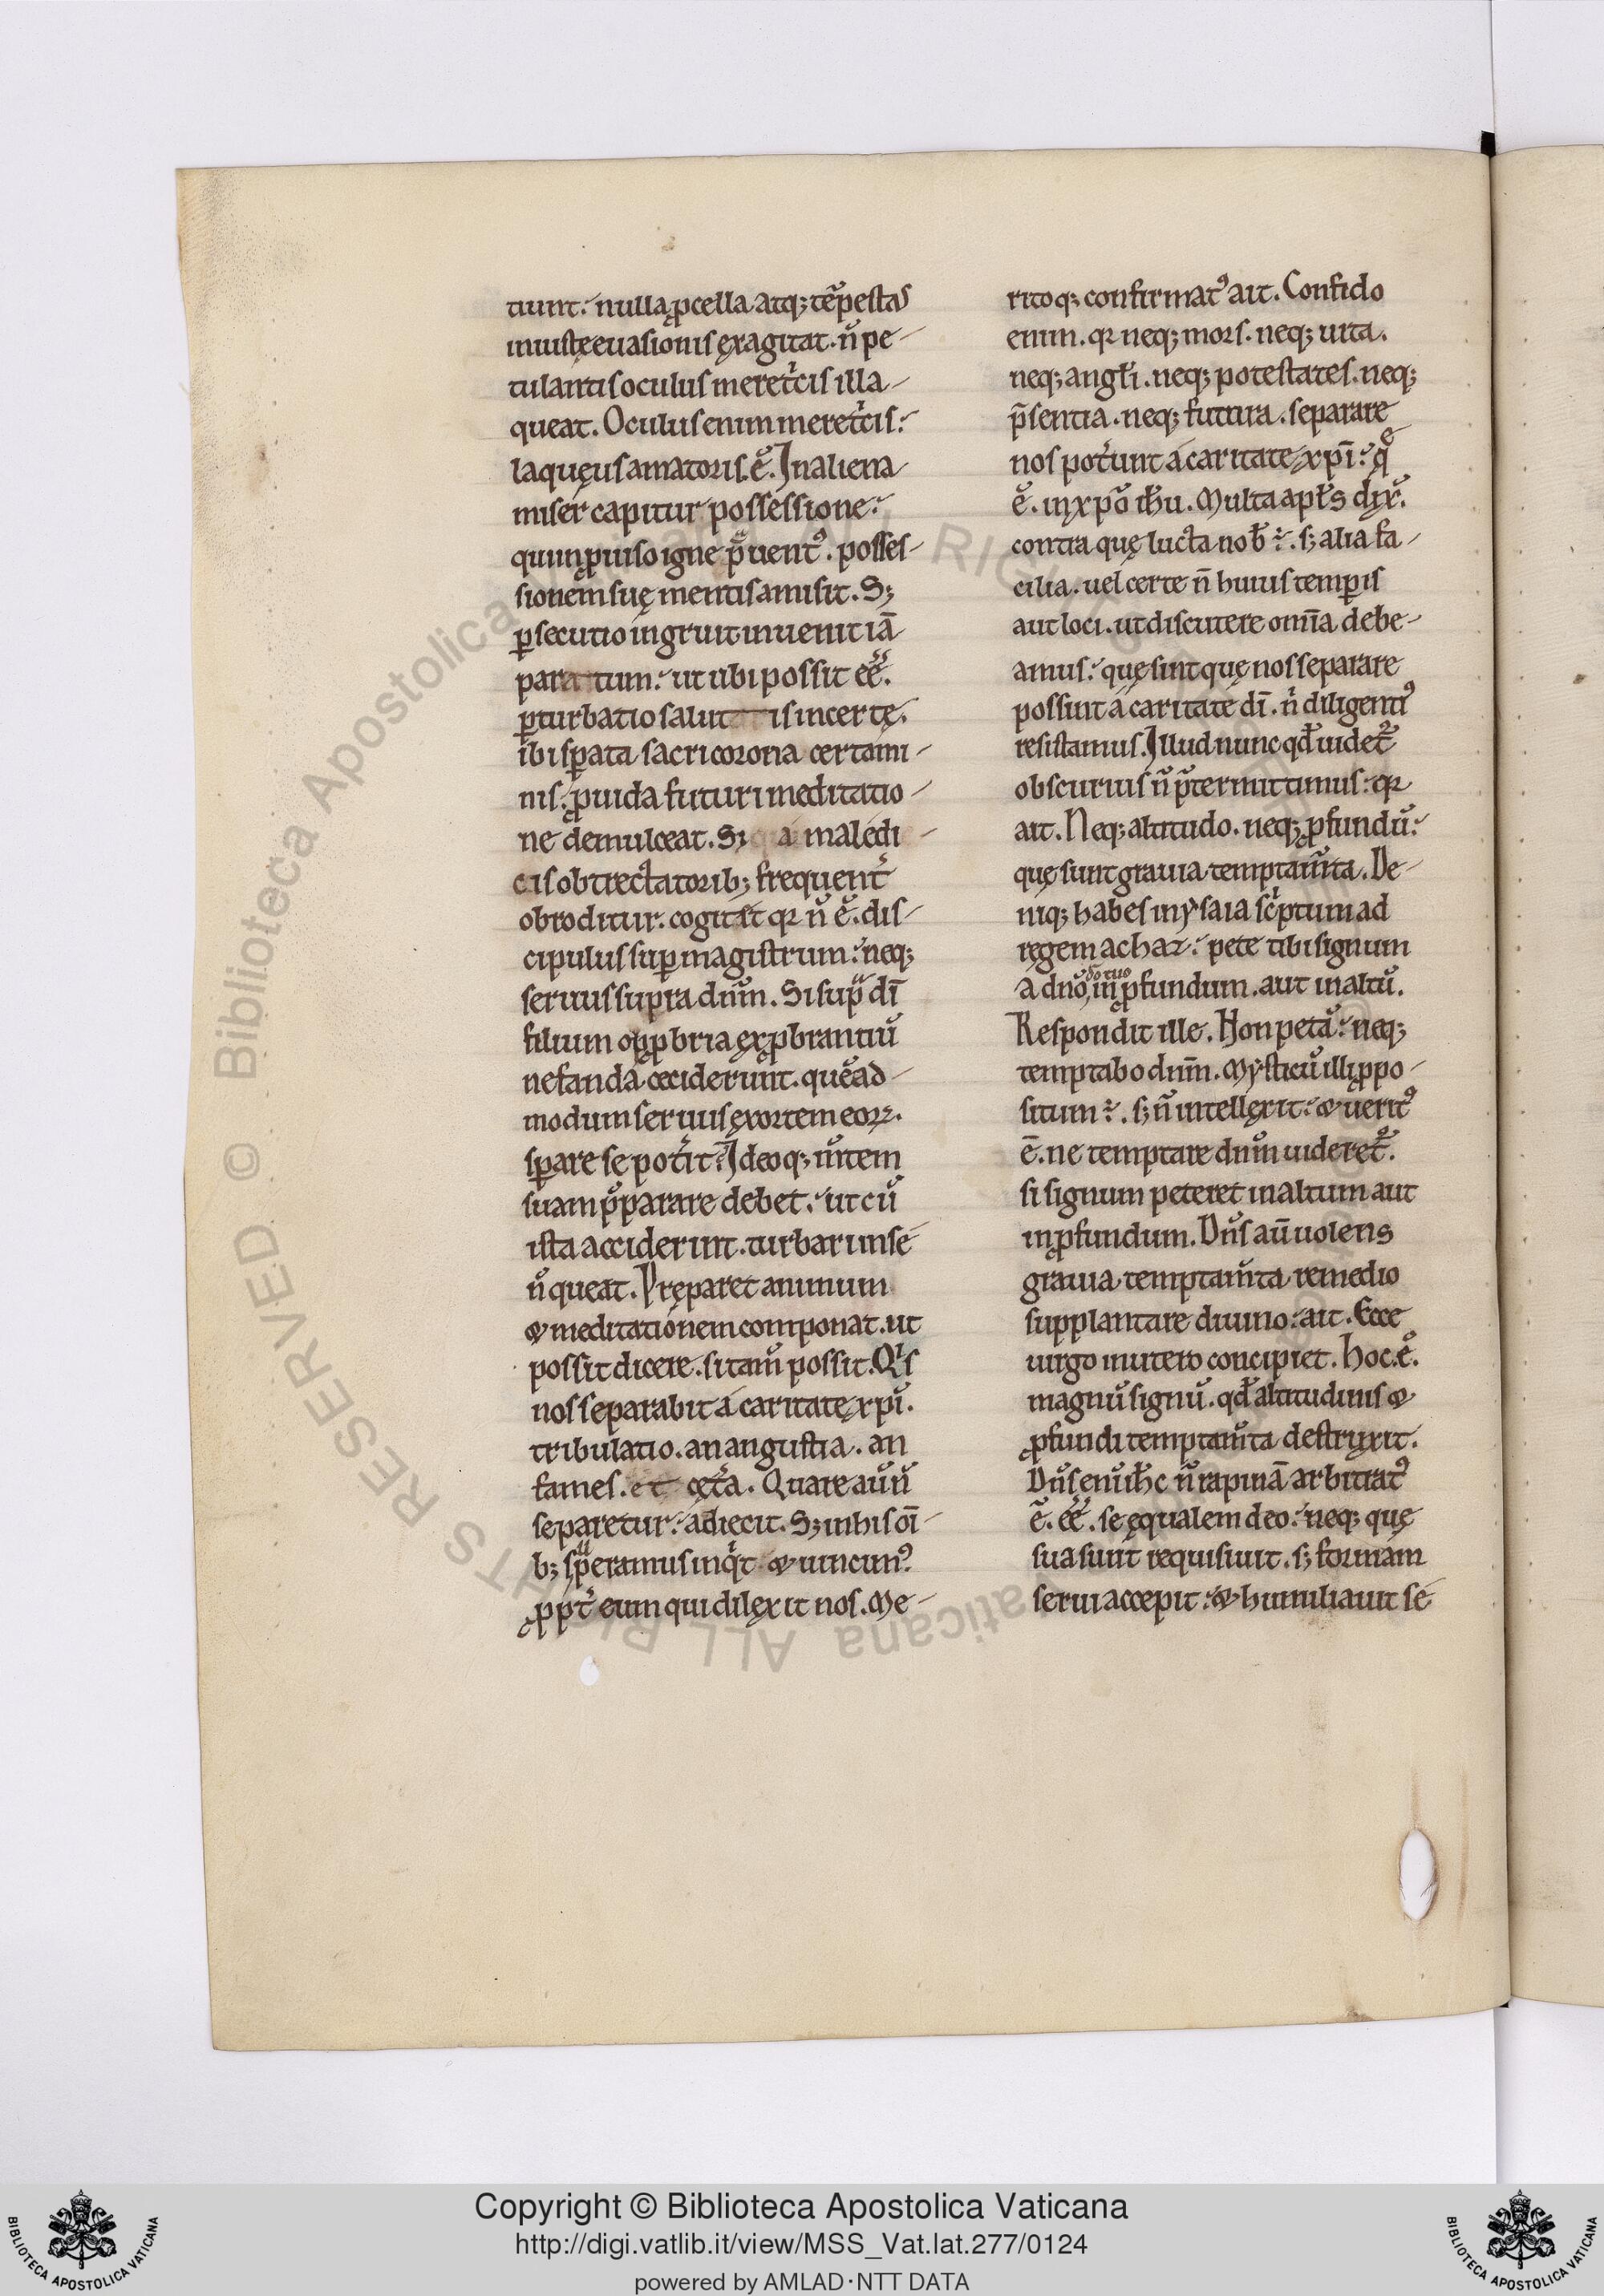 tiunt. nulla ꝓcella atq; tēpestas
iniustę euasionis exagitat. n̄ pe-
tulantis oculus meret͛cis illa-
queat. Oculus enim meret͛cis:
laqueus amatoris ē. In aliena
miser capitur possessione:
qui inꝓuiso igne p̄uentꝰ. posses-
sionem suę mentis amisit. S;
ꝑsecutio ingruit inuenit iā
paratum. ut ubi possit eē.
ꝑturbatio salutis incertę.
ibi sꝑata sacri corona certami-
nis. ꝓuida futuri meditatio-
ne demulceat. Si a maledi-
cis obtrectatorib; frequent͛
obroditur. cogitet qr n̄ ē. dis-
cipulus suꝑ magistrum. neq;
seruus supra dnm̄. Si supͣ dī
filium opꝓbria exꝓbrantiū
nefanda ceciderunt. quēad-
modum seruus exortem eoꝝ.
sꝑare se pot͛it? Ideoq; m̄tem
suam p̄parare debet. ut cū
ista acciderint. turbari in se
n̄ queat. Preparet animum
& meditationem componat. ut
possit dicere. si tam̄ possit. Qⁱs
nos separabit a caritate xp̄i.
tribulatio. an angustia. an
fames. et cęt͛a. Quare aū n̄
separetur. adiecit. S; in his oī-
b; suꝑamus inqͥt & uincimꝰ
ꝓpt͛ eum qui dilexit nos. Me-
ritoq; confirmatꝰ ait. Confido
enim. qr neq; mors. neq; uita.
neq; angłi. neq; potestates. neq;
p̄sentia. neq; futura. separare
nos pot͛unt a caritate xp̄i. q̄
ē. in xp̄o ih̄u. Multa apłs dix̄.
contra quę lucta nob̄ ÷. s; alia fa-
cilia. uel certe n̄ huius temꝑis
aut loci. ut discutere om̄ia debe-
amus. quę sint quę nos separare
possint a caritate dī. n͛ diligentꝰ
resistamus. Illud nunc qđ uidet᷑
obscurius n̄ p̄termittimus. qr
ait. Neq; altitudo. neq; ꝓfundū.
quę sunt grauia temptam̄ta. De-
niq; habes in ysaia sc͛ptum ad
regem achaz. pete tibi signum
a dn̄o do tuo in ꝓfundum. aut in altū.
Respondit ille. Non petā. neq;
temptabo dnm̄. Mysticū illi ꝓpo-
situm ÷. s; n̄ intellexit. & ueritꝰ
ē. ne temptare dnm̄ uideret᷑.
si signum peteret in altum aut
in ꝓfundum. Dn̄s aū uolens
grauia temptam̄ta remedio
supplantare diuino. ait. Ecce
uirgo in utero concipiet. Hoc ē.
magnū signū. qđ altitudinis &
ꝓfundi temptam̄ta destruxit.
Dn̄s enī ih̄c n̄ rapinā arbitratꝰ
ē. eē. se ęqualem deo. neq; quę
sua sunt requisiuit. s; formam
serui accepit. & humiliauit se
Copyright © Biblioteca Apostolica Vaticana
http://digi.vatlib.it/view/MSS_Vat.lat.277/0124
powered by AMLAD·NTT DATA